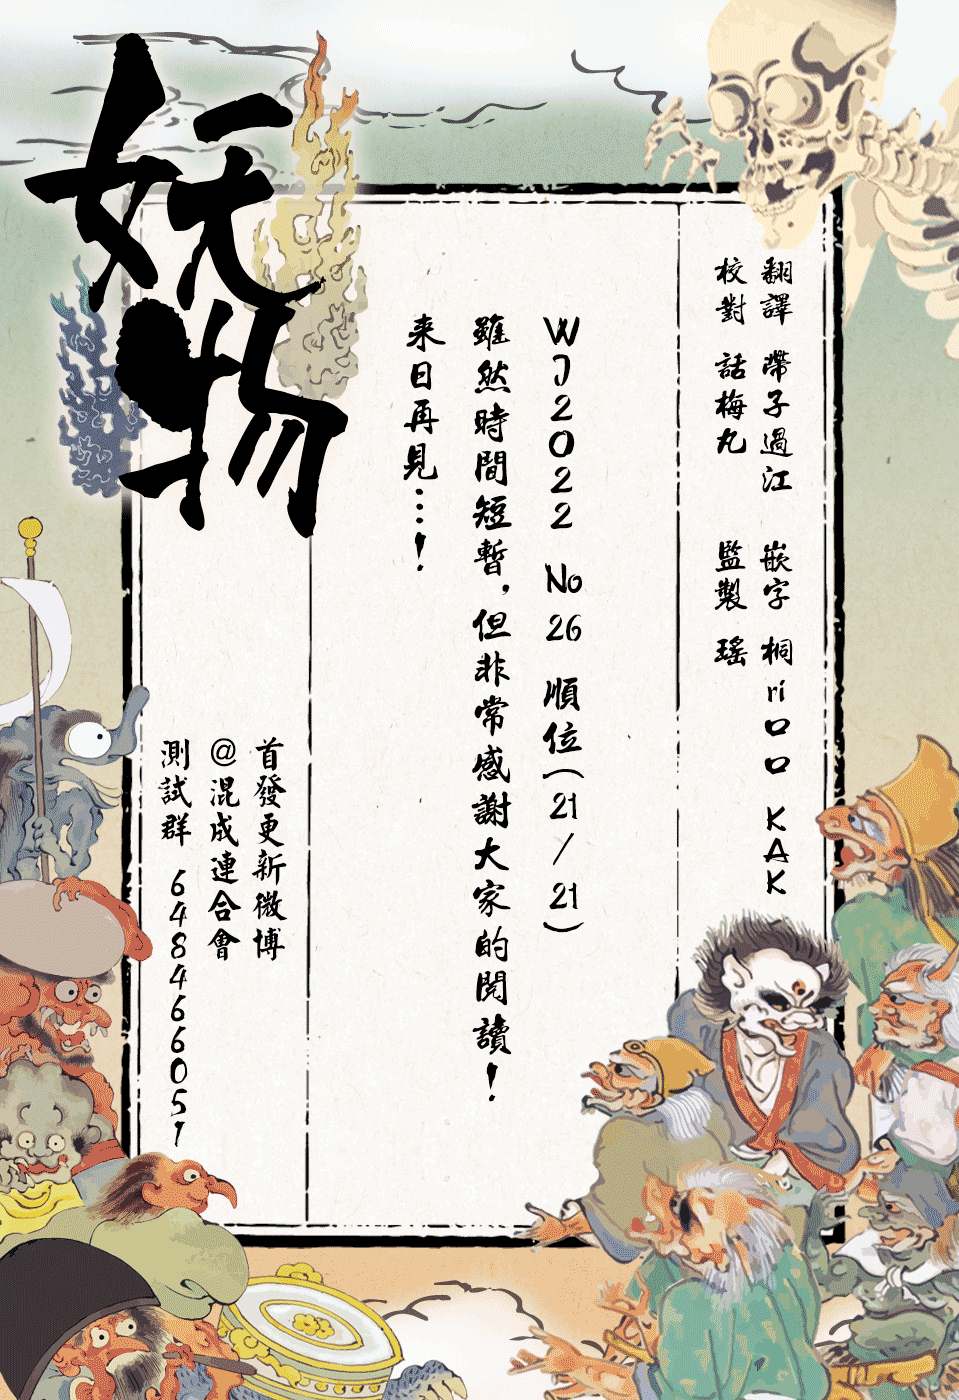 妖物
翻譯 帶子過江 嵌字 桐ri口口 KAK
校對 話梅丸 監製 瑤
WJ2022 No26 順位(21/21)
雖然時間短暫,但非常感謝大家的閱讀!
来日再見…!
首發更新微博
@混成連合會
測試群 648466051